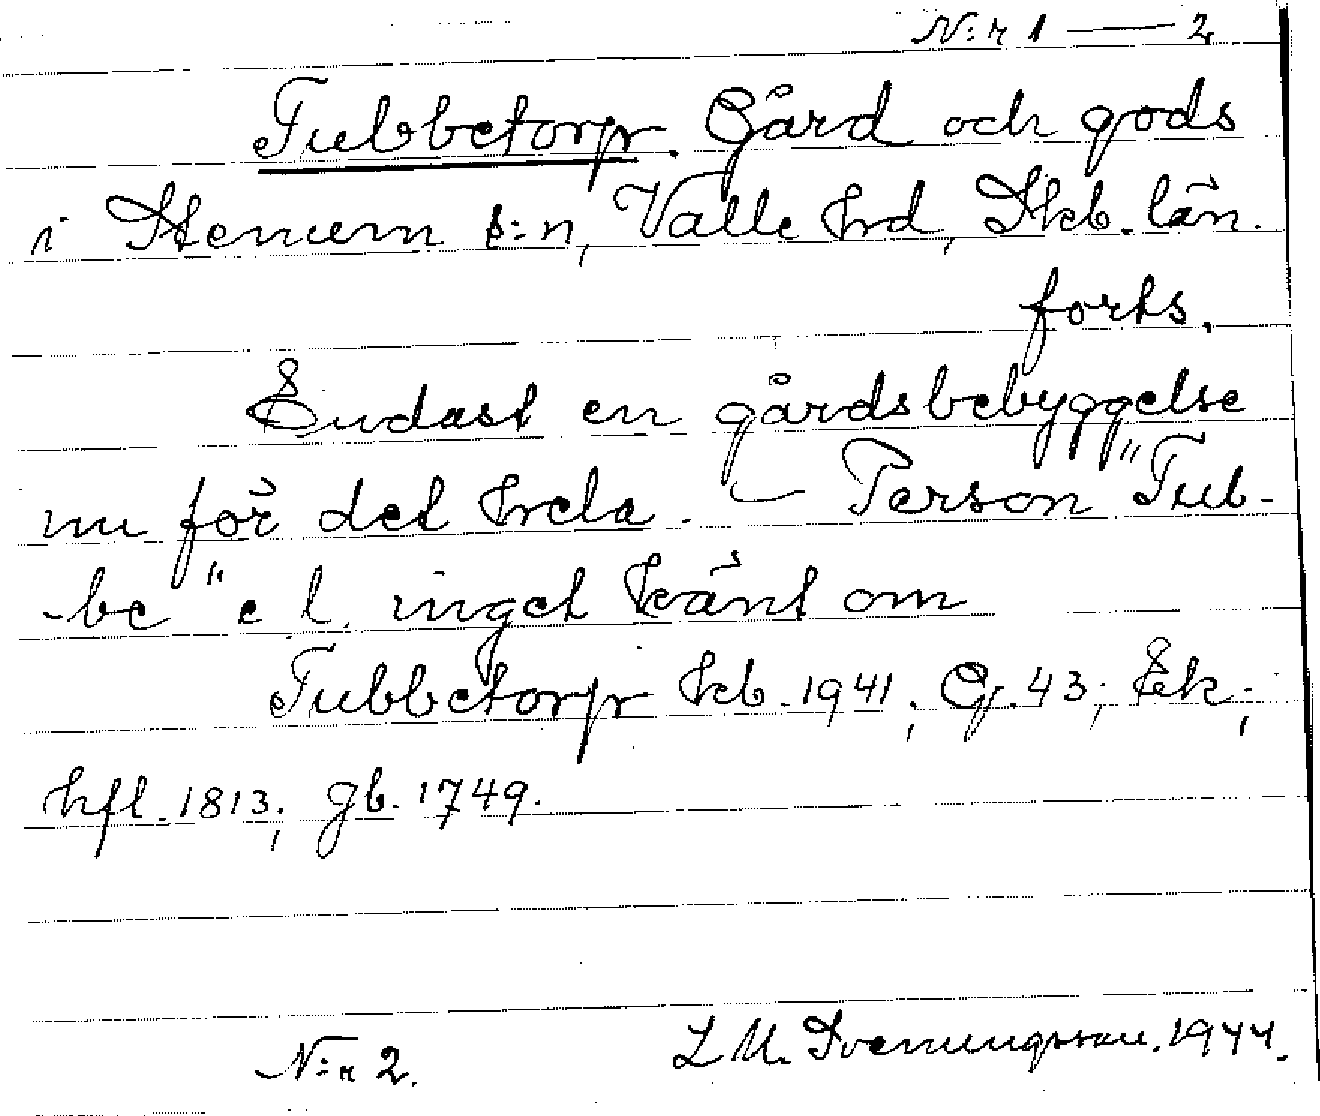 N:r 1 — 2
Tubbetorp. Gård och gods
i Stenum s:n, Valle hrd, Skb. län.
forts.
Endast en gårdsbebyggelse
nu för det hela. — Person "Tub-
-be" e l. inget känt om
Tubbetorp kb. 1941; G. 43; Ek;
hfl. 1813; gb. 1749.
N:r 2. L M. Svenungsson. 1944.